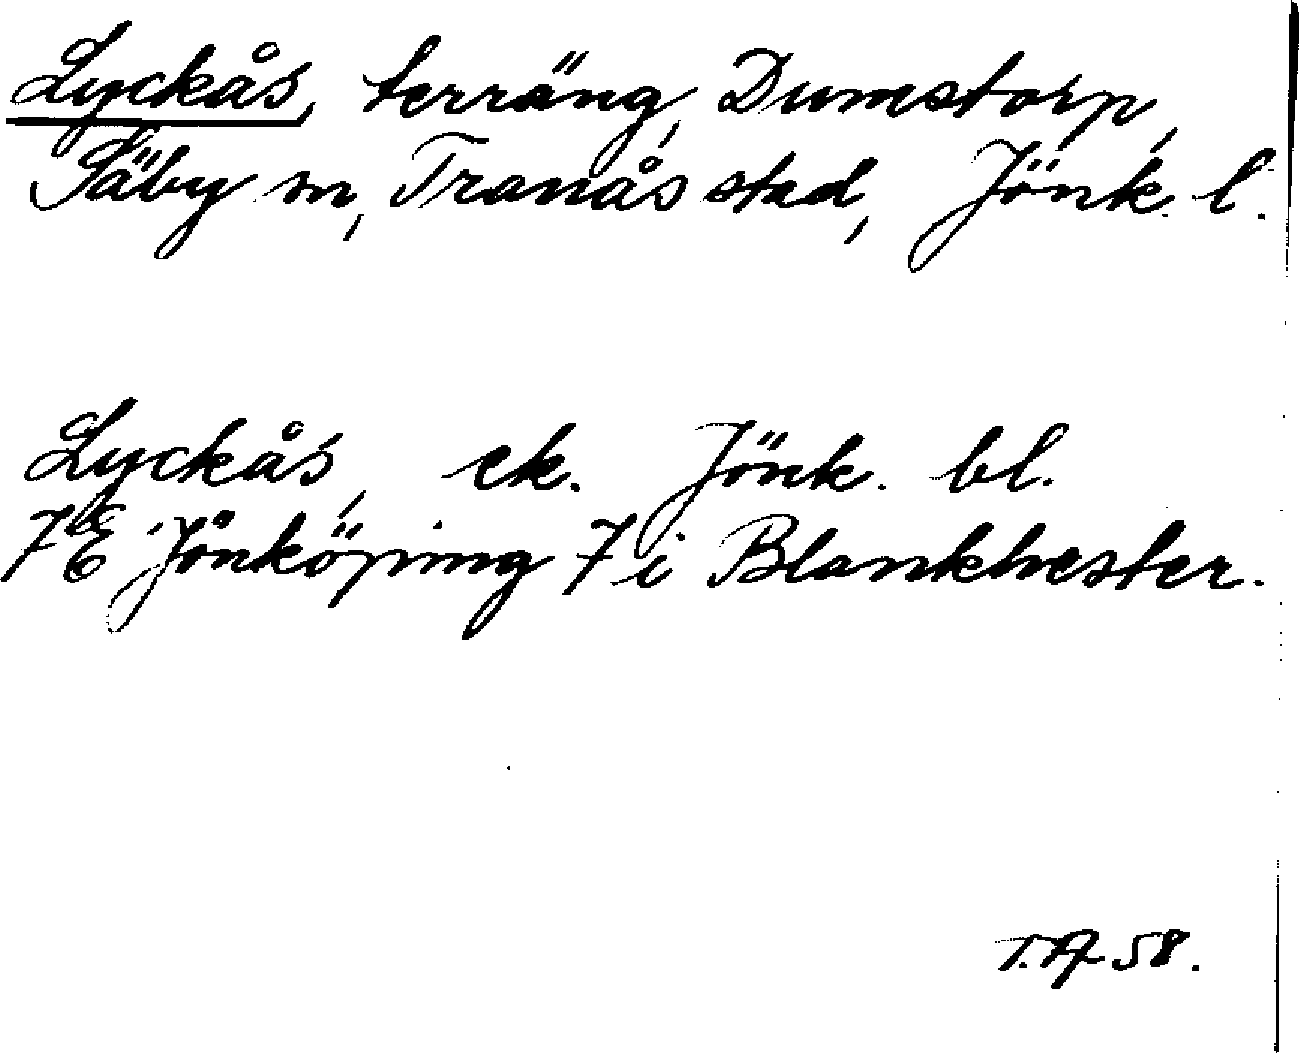 Lyckås, terräng, Dumstorp,
Säby sn, Tranås stad, Jönk. l.
Lyckås, ek. Jönk. bl.
7E Jönköping 7 i Blankhester.
58.